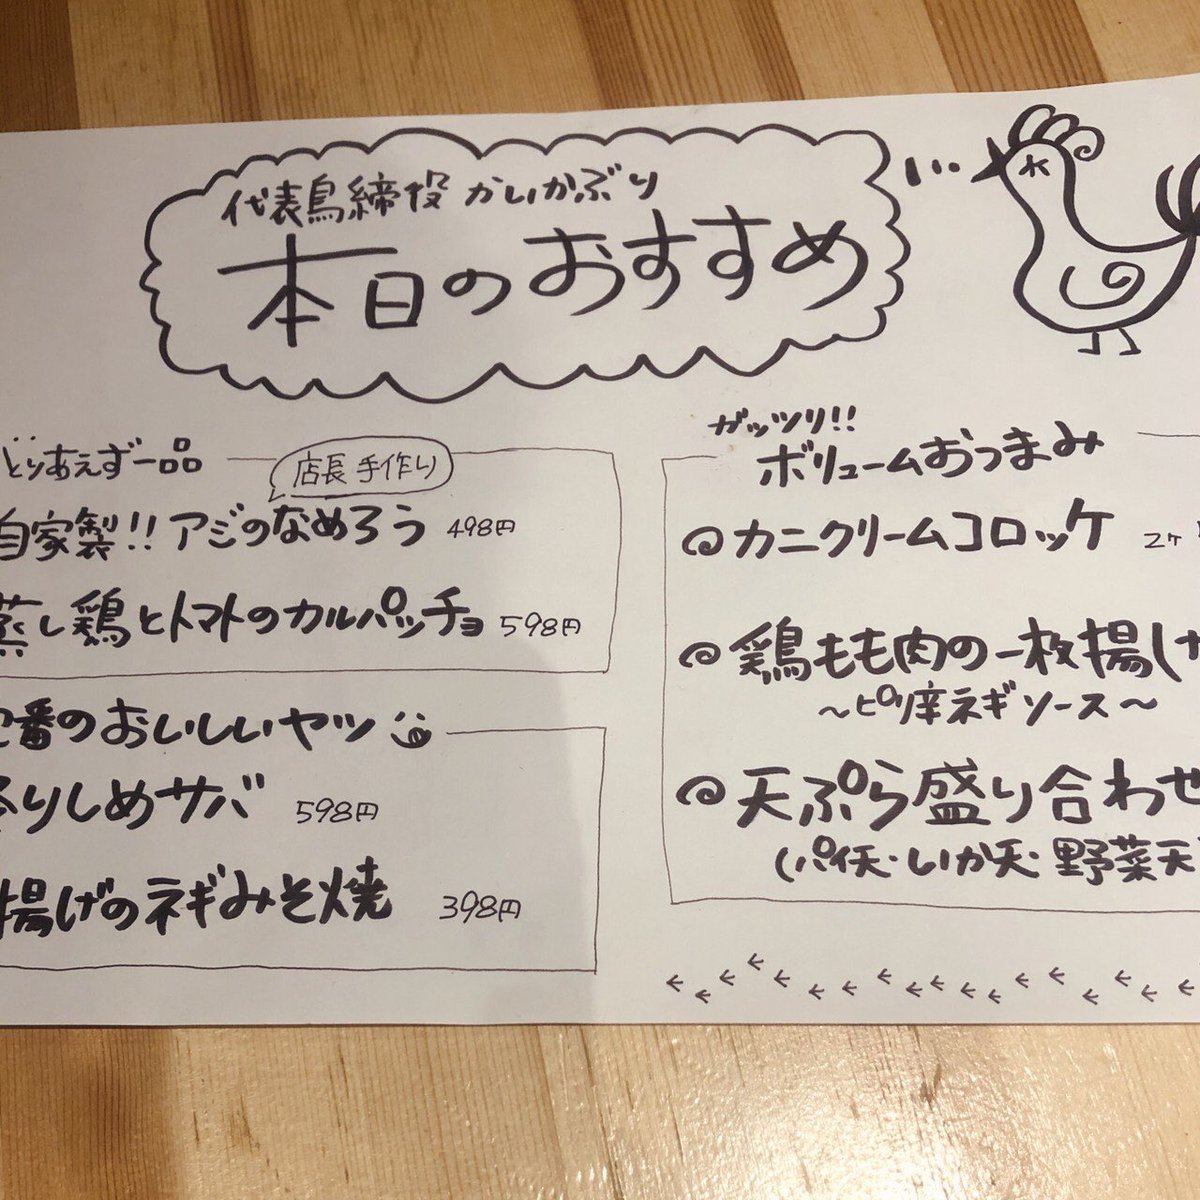 代表鳥締役 かいかぶり
本日のおすすめ
とりあえず一品
店長手作り
自家製!! アジのなめろう 498円
蒸し鶏とトマトのカルパッチョ 598円
番のおいしいヤツ
りしめサバ 598円
揚げのネギみそ焼 398円
ガッツリ!!
ボリュームおつまみ
カニクリームコロッケ 2ヶ
鶏もも肉の一枚揚げ
～ピリ辛ネギソース～
天ぷら盛り合わせ
(パイ天・いか天・野菜天